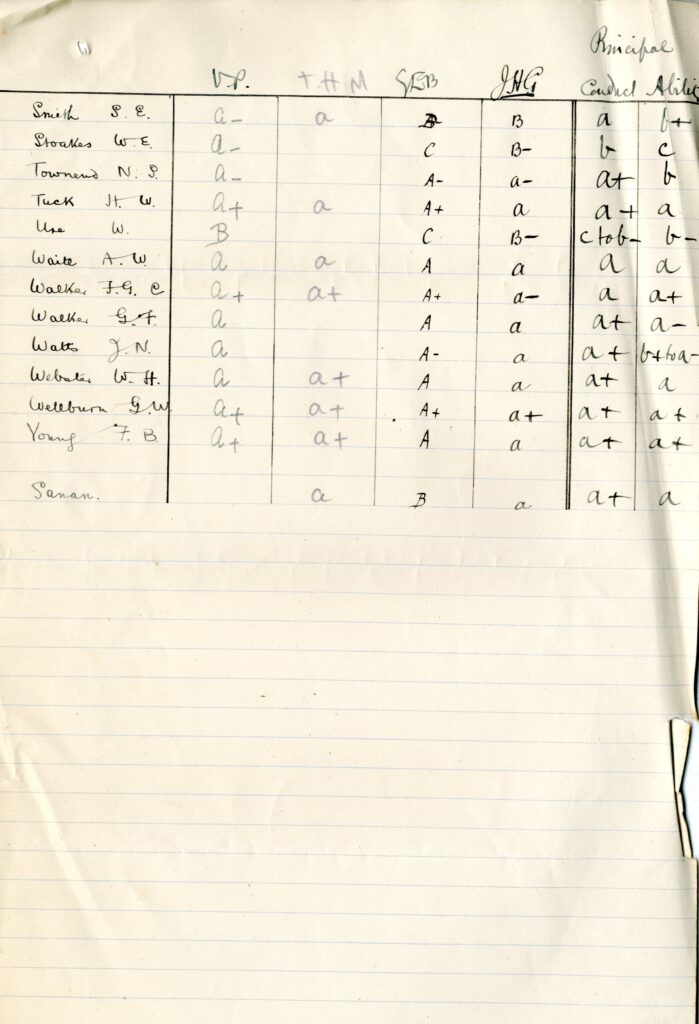 Principal
V.P. T.H.M GEB JHG Conduct Abilit
Smith S. E. a- a B B a b+
Stoakes W. E. a- C B- b c
Townend N. S. a- A- a- a+ b
Tuck H. W. a+ a A+ a a+ a
Use W. B C B- c to b- b-
Waite A. W a a A a a a
Walker F. G. C a+ a+ A+ a- a a+
Walker G. F. a A a a+ a-
Watts J. N. a A- a a+ b+ to a-
Webster W. H. a a+ A a a+ a
Wellburn G. W a+ a+ A+ a+ a+ a+
Young F. B a+ a+ A a a+ a+
Sanan. a B a a+ a